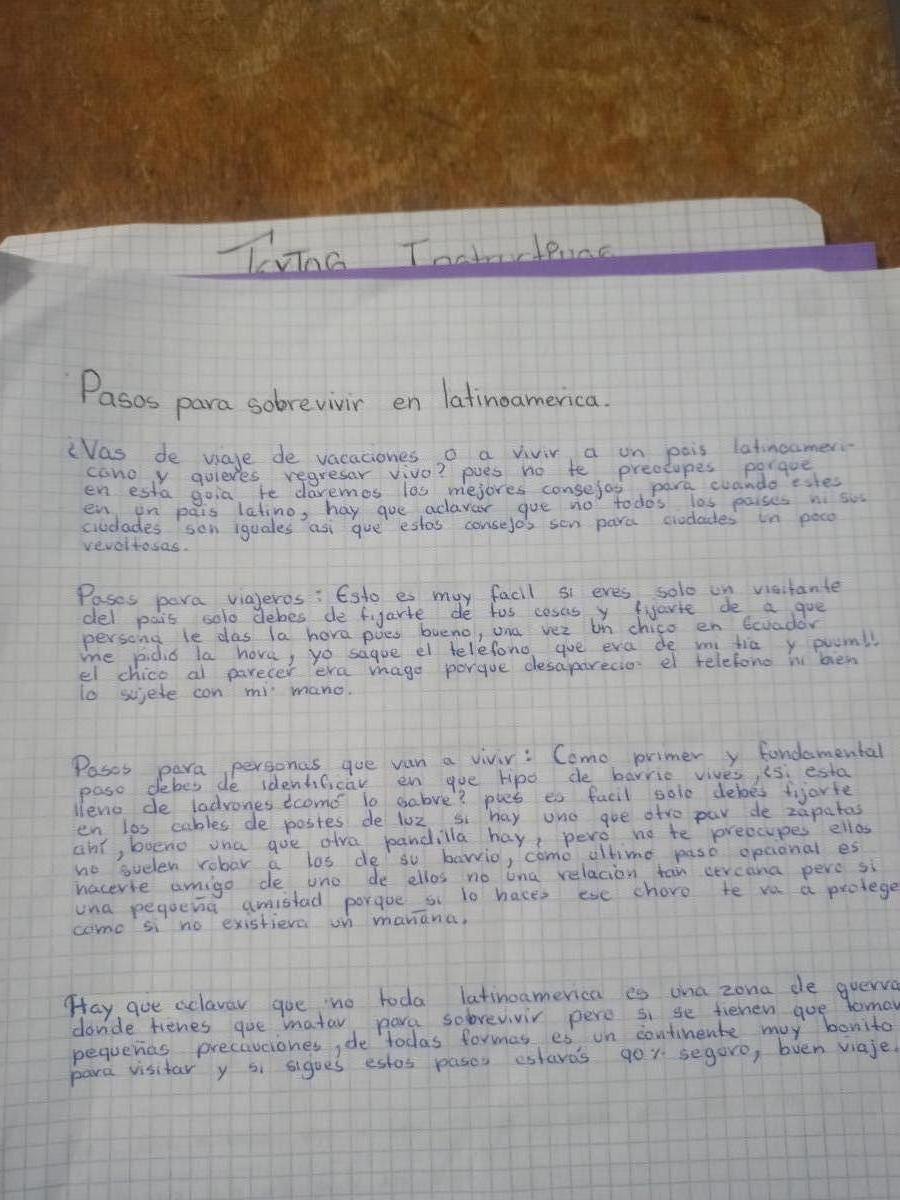 Textos Instructivos
Pasos para sobrevivir en latinoamerica.
¿Vas de viaje de vacaciones o a vivir a un pais latinoameri-
cano y quieres regresar vivo? pues no te preocupes porque
en esta guia te daremos los mejores consejos para cuando estes
en un pais latino, hay que aclarar que no todos los paises ni sus
ciudades son iguales asi que estos consejos son para ciudades un poco
revoltosas.
Pasos para viajeros: Esto es muy facil si eres solo un visitante
del pais solo debes de fijarte de tus cosas y fijarte de a que
persona le das la hora pues bueno, una vez un chico en Ecuador
me pidió la hora, yo saque el telefono que era de mi tia y puum!!
el chico al parecer era mago porque desaparecio el telefono ni bien
lo sujete con mi mano.
Pasos para personas que van a vivir: Como primer y fundamental
paso debes de identificar en que tipo de barrio vives, ¿si esta
lleno de ladrones ¿como lo sabre? pues es facil solo debes fijarte
en los cables de postes de luz si hay uno que otro par de zapatas
ahí, bueno una que otra pandilla hay, pero no te preocupes ellos
no suelen robar a los de su barrio, como ultimo paso opcional es
hacerte amigo de uno de ellos no una relacion tan cercana pero si
una pequeña amistad porque si lo haces ese choro te va a protege
como si no existiera un mañana.
Hay que aclarar que no toda latinoamerica es una zona de guerra
donde tienes que matar para sobrevivir pero si se tienen que tomar
pequeñas precauciones, de todas formas es un continente muy bonito
para visitar y si sigues estos pasos estarás 90% seguro, buen viaje.